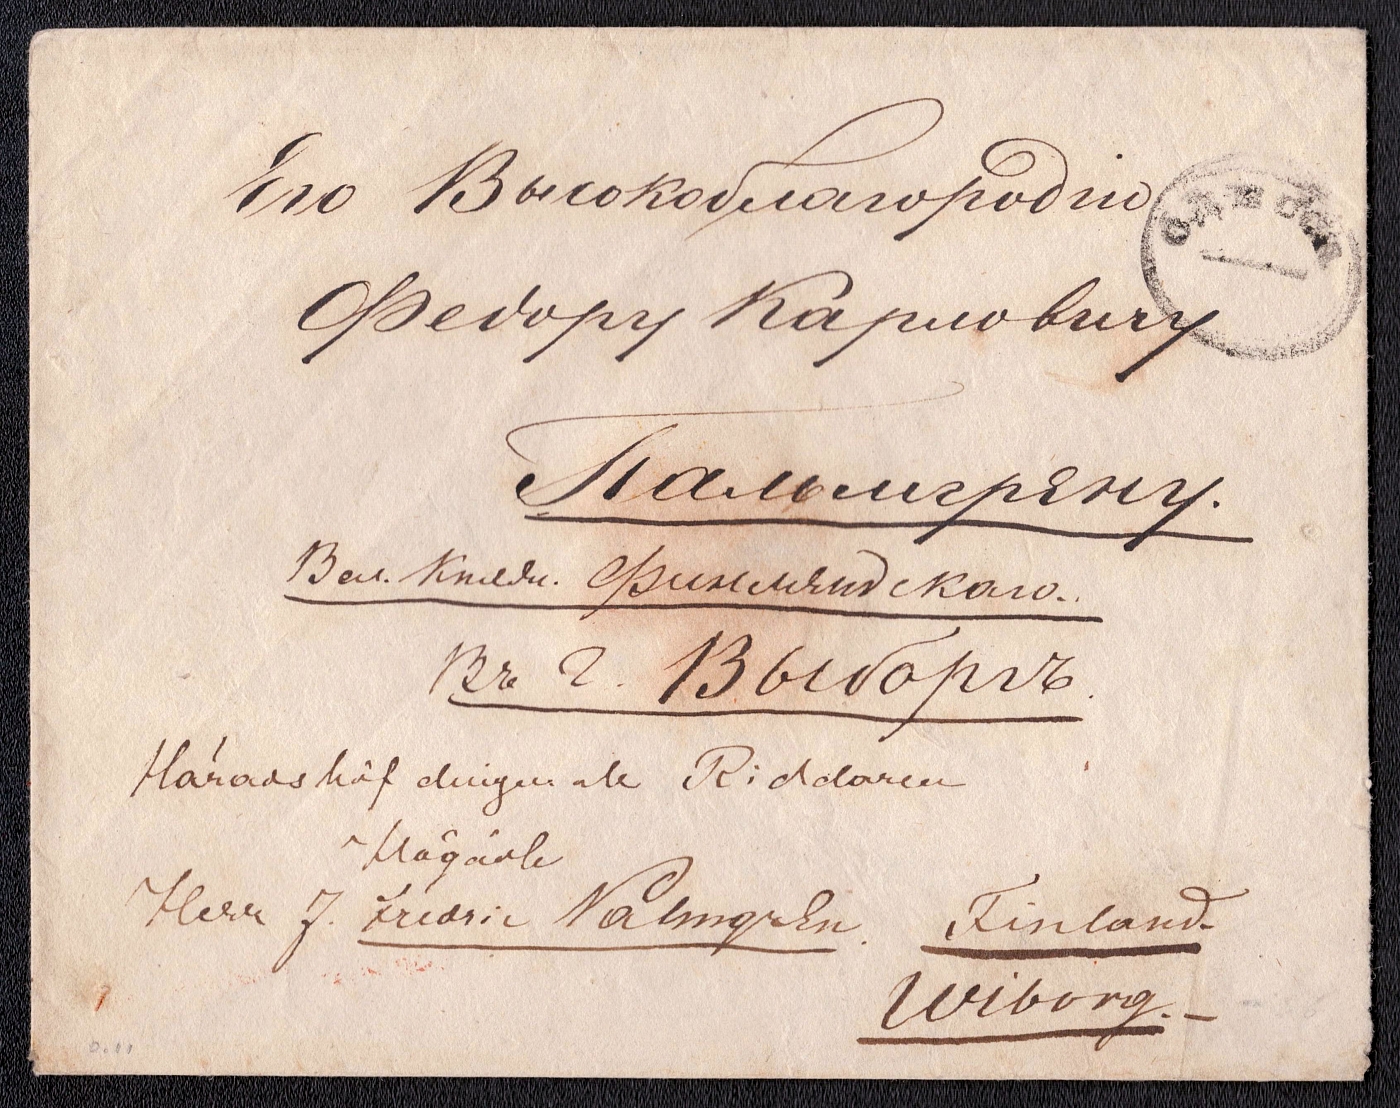 Его Высокоблагородію
ОДЕССА
Федору Карловичу
Пальмгрену.
Вел. Княж. Финляндскаго.
Въ г. Выборгъ.
Häradshöfdingen och Riddaren
Högädle
Herr J. Fredric Palmgren. Finland.
Wiborg.